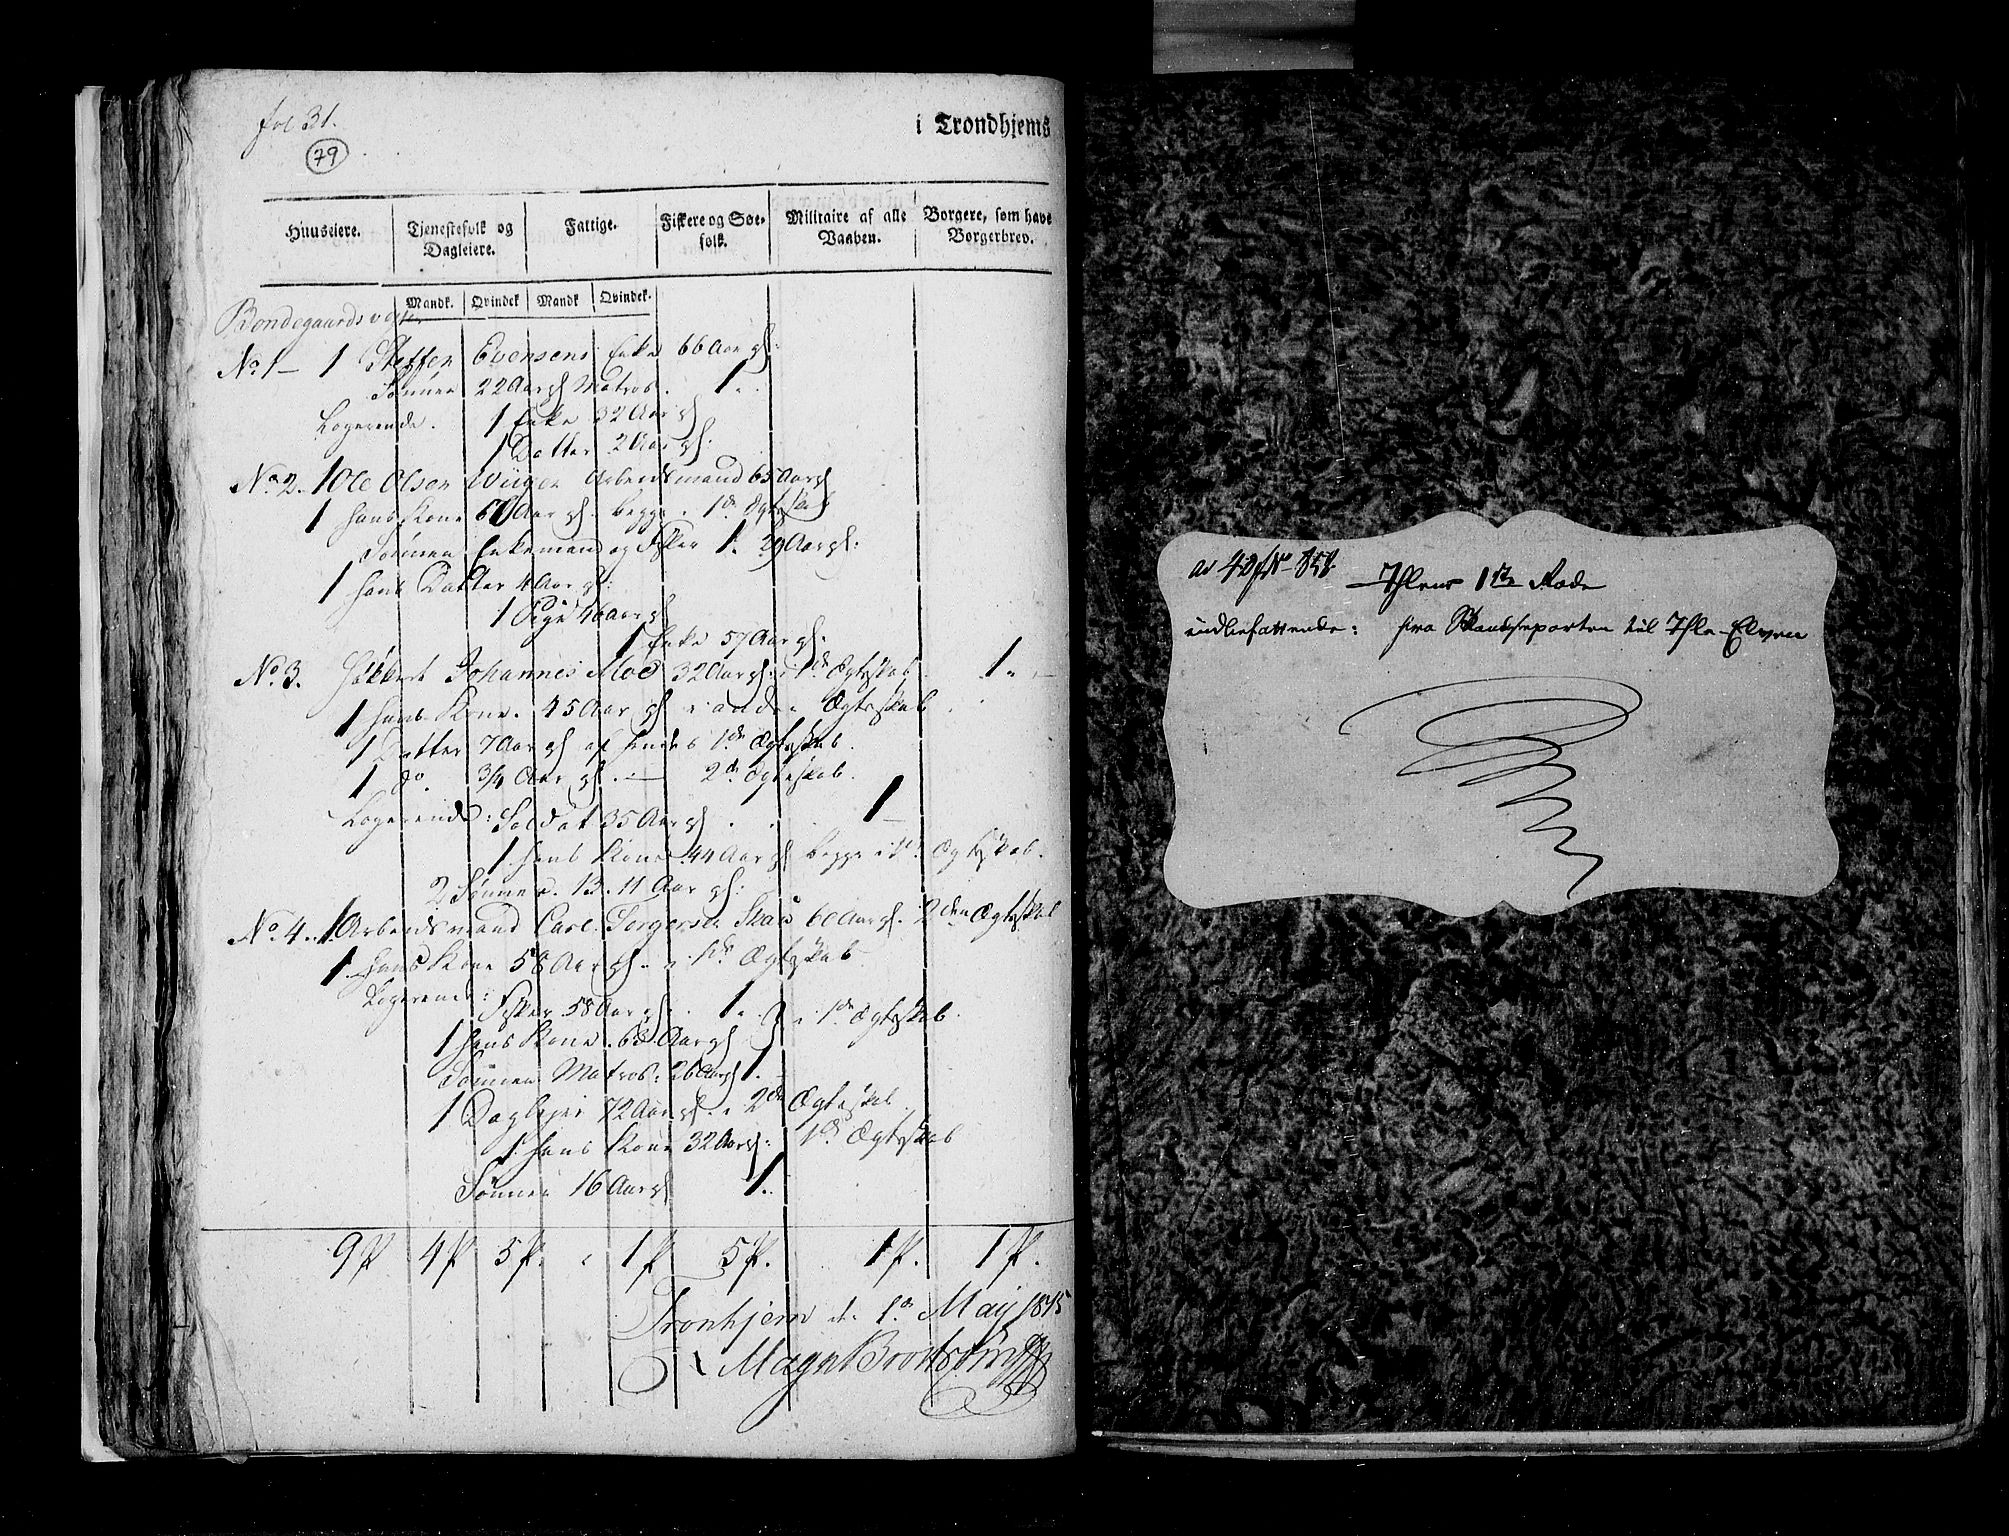 fol 31.
79
i Trondhjems
Huuseiere. Tjenestefolk og Dagleiere. Fattige. Fiskere og Søefolk. Militaire af alle Vaaben. Borgere, som have Borgerbrev.
Mandk. Qvindek Mandk Qvindek.
Bondegaards
No 1 1 Steffen Evensens Enke 66 Aar gl:
Sønnen 22 Aar gl Matros. 1.
Logerende. 1 Enke 32 Aar gl
1 Datter 2 Aar gl:
No 2. 1 Ole Olsen Wiigen Arbeidsmand 65 Aar gl
1 hans Kone 60 Aar gl. begge i 1de Ægteskab
Sønnen Enkemand og Fisker 1. 29 Aar gl:
1 hans Datter 4 Aar gl:
1 Pige 40 Aar gl
1 Enke 57 Aar gl:
No 3. Johannes Moe 32 Aar gl: i 1de Ægteskab 1.
1 hans Kone. 45 Aar gl i andet Ægteskab
1 Datter 7 Aar gl af hendes 1de Ægteskab.
1 do. 3/4 Aar gl. — 2de Ægteskab.
Logerende: Soldat 35 Aar gl 1
1 hans Kone 44 Aar gl begge i 1de Ægteskab.
2 Sønner. 13. 11 Aar gl:
No 4. 1 Arbeidsmand Carl Torgersen 60 Aar gl. 2den Ægteskab
1 hans Kone 58 Aar gl. i 1de Ægteskab
Logerende:
Fisker 58 Aar gl. 1. i 1de Ægteskab
1 hans Kone. Aar gl
Sønnen Matros: 26 Aar gl 1.
1 Daglejer 72 Aar gl. i 2de Ægteskab
1. hans Kone 32 Aar gl: 1de Ægteskab
Sønnen 16 Aar gl 1.
9 P 4 P 5 P. 1 P 5 P. 1 P. 1 P.
Tronhjem d. 1. May 1815
Ihlens 1ste Rode
indbefattende: fra Skandseporten til Ihle-Elven